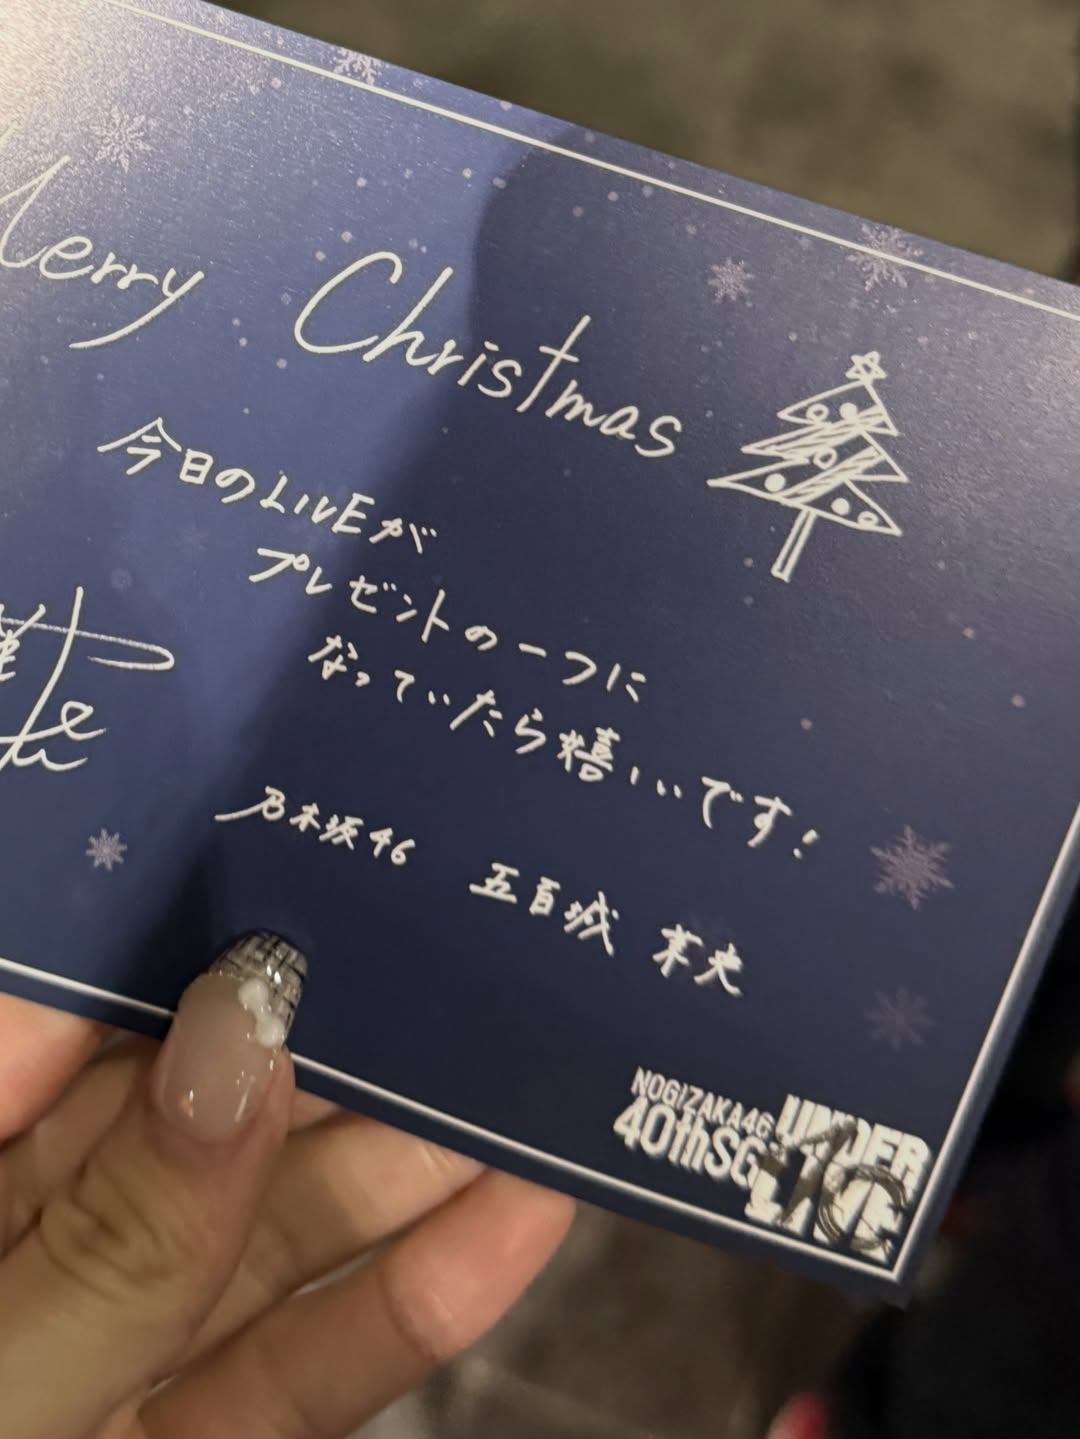 Merry Christmas
今日のLIVEが
プレゼントの一つに
なっていたら嬉しいです!
乃木坂46 五百城 茉央
NOGIZAKA46
40thSG
UNDER
LIVE